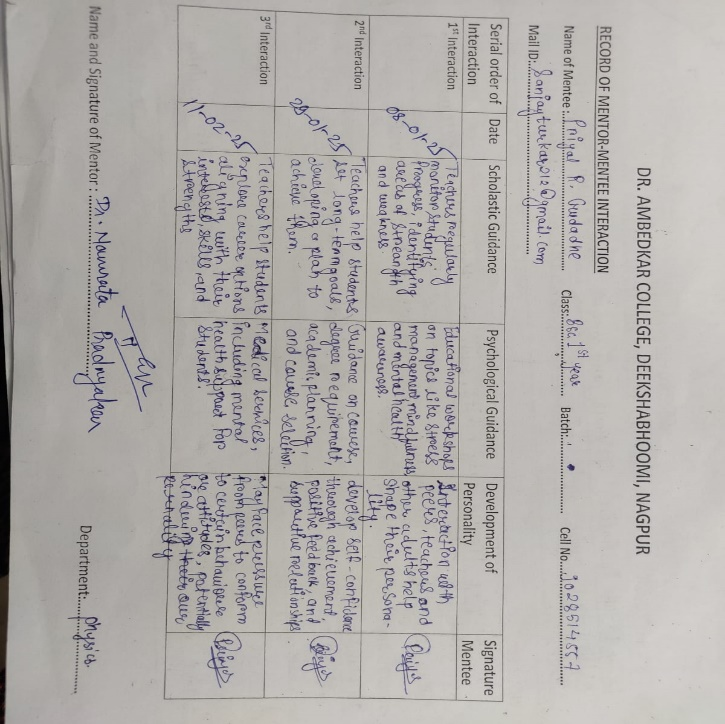 DR. AMBEDKAR COLLEGE, DEEKSHABHOOMI, NAGPUR
RECORD OF MENTOR-MENTEE INTERACTION
Name of Mentee : Priyal R. Class: BSc 1st year Batch: Cell No. 9028514557
Mail ID: Sanjayturkar212@gmail.com
Serial order of Interaction
Date
Scholastic Guidance
Psychological Guidance
Development of Personality
Signature Mentee
1st Interaction
08-01-25
Teachers regularly
monitor students.
Progress, identifying
areas of strength
and weakness
Educational workshops
on topics like stress
management, mindfulness
and mental health
awareness
Interaction with
peers, teachers and
other adults help
shape their persona-
lity.
2nd Interaction
29-01-25
Teachers help students
set long-term goals,
developing a plan to
achieve them.
Guidance on courses,
degree requirement,
academic planning,
and course selection.
develop self-confidence
through achievement,
positive feedback, and
supportive relationships
3rd Interaction
11-02-25
Teachers help students
explore career options
aligning with their
interests, skills, and
strengths
Medical services,
including mental
health support for
students.
May face pressure
from peers to conform
to certain behaviours
or attitudes, potentially
hindering their own
personality
Name and Signature of Mentor : Dr. Namrata Pradnyakar Department: physics.